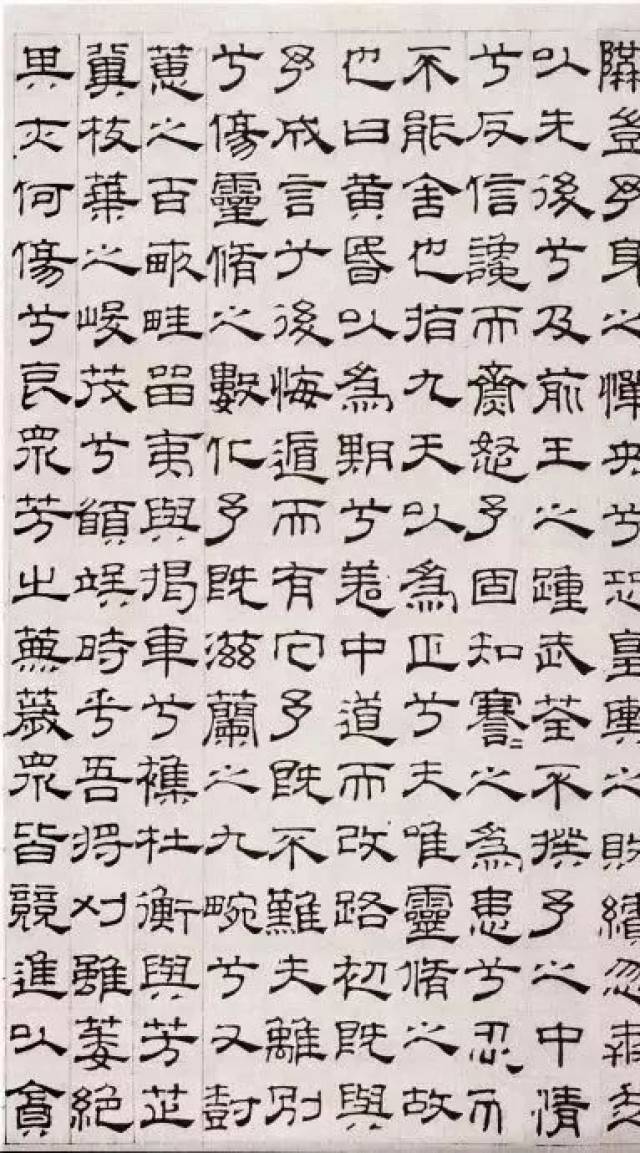 豈予身之憚央兮恐皇輿之敗績忽奔走
以先後兮及前王之踵武荃不揆予之中情
兮反信讒而齌怒予固知謇〻之為患兮忍而
不能舍也指九天以為正兮夫唯靈脩之故
也曰黃昏以為期兮羌中道而改路初既與
予成言兮後悔遁而有它予既不難夫離別
兮傷靈脩之數化予既滋蘭之九畹兮又樹
蕙之百畝畦留夷與揭車兮雜杜衡與芳芷
冀枝葉之峻茂兮願竢時乎吾將刈雖萎絕
其亦何傷兮哀眾芳之蕪穢眾皆競進以貪